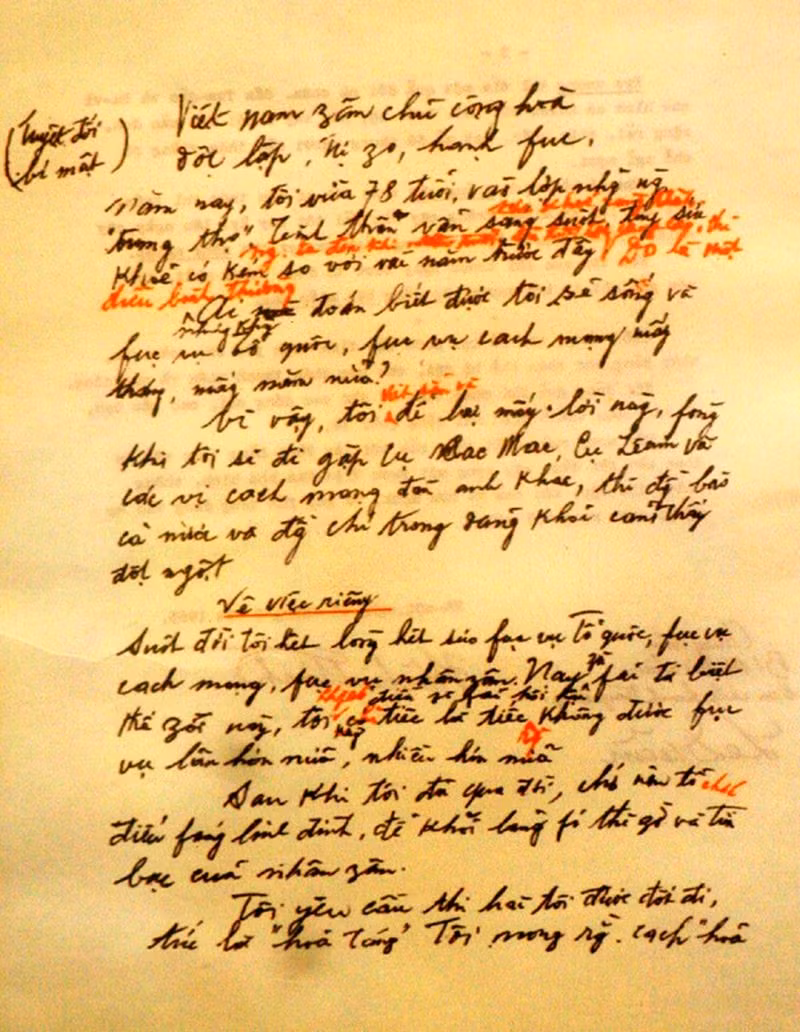 (Tuyệt đối
bí mật)
Việt nam zân chủ cộng hoà
độc lập, tự zo, hạnh fúc.
Năm nay, tôi vừa 78 tuổi, vào lớp nhữg ng
"trung thọ". Tinh thần vẫn sáng suốt, tuy sức
khoẻ có kém so với vài năm trước đây. Đó là một
điều bình thường
Ai mà đoán biết được tôi sẽ sống và
fục vụ tổ quốc, fục vụ cách mạng mấy
tháng, mấy năm nữa?
Vì vậy, tôi để lại mấy lời này, fòng
khi tôi sẽ đi gặp cụ Các Mác, Cụ Lênin và
các vị cách mạng đàn anh khác, thì đồg bào
cả nước và đồg chí trong đảng khỏi cảm thấy
đột ngột
Về việc riêng
Suốt đời tôi hết lòng hết sức fục vụ Tổ quốc, fục vụ
cách mạng, fục vụ nhân zân. Nay zù fải từ biệt
thế zới này, tôi
tiếc là tiếc không được fục
vụ lâu hơn nữa, nhiều hơn nữa
Sau khi tôi đã qua đời, chớ nên tổ chức
điếu fúng linh đình, để khỏi lãng fí thì giờ và tiền
bạc của nhân zân.
Tôi yêu cầu thi hài tôi được đốt đi,
tức là "hoả táng". Tôi mong rằg cách "hoả